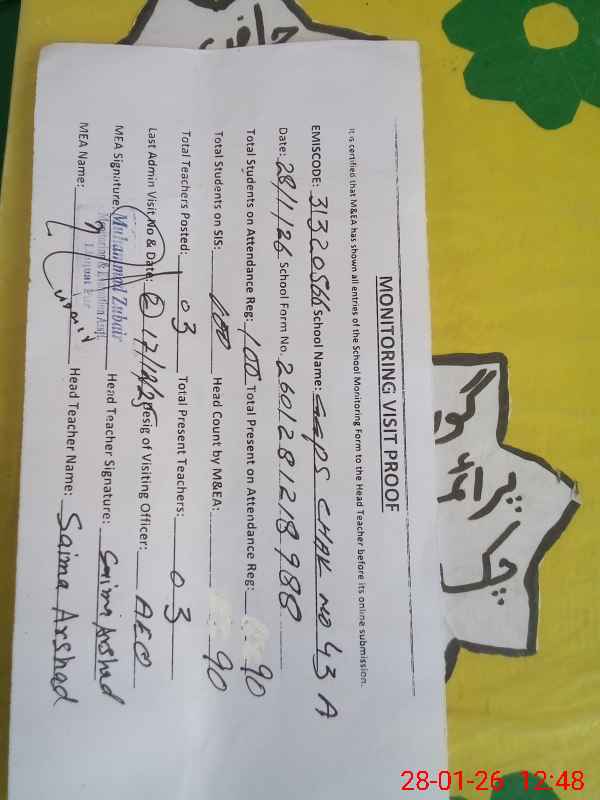 MONITORING VISIT PROOF
It is certified that M&EA has shown all entries of the School Monitoring Form to the Head Teacher before its online submission.
EMISCODE: 31320566 School Name: GGPS CHAK NO 43 A
Date: 28/1/26 School Form No. 2601281218988
Total Students on Attendance Reg: 100 Total Present on Attendance Reg: 90
Total Students on SIS: 100 Head Count by M&EA: 90
Total Teachers Posted: 03 Total Present Teachers: 03
Last Admin Visit No & Date: 17/12/25 Desig of Visiting Officer: AEO
Muhammad Zubair
MEA Signature: Head Teacher Signature: Saima Arshad
MEA Name: Head Teacher Name: Saima Arshad
28-01-26 12:48